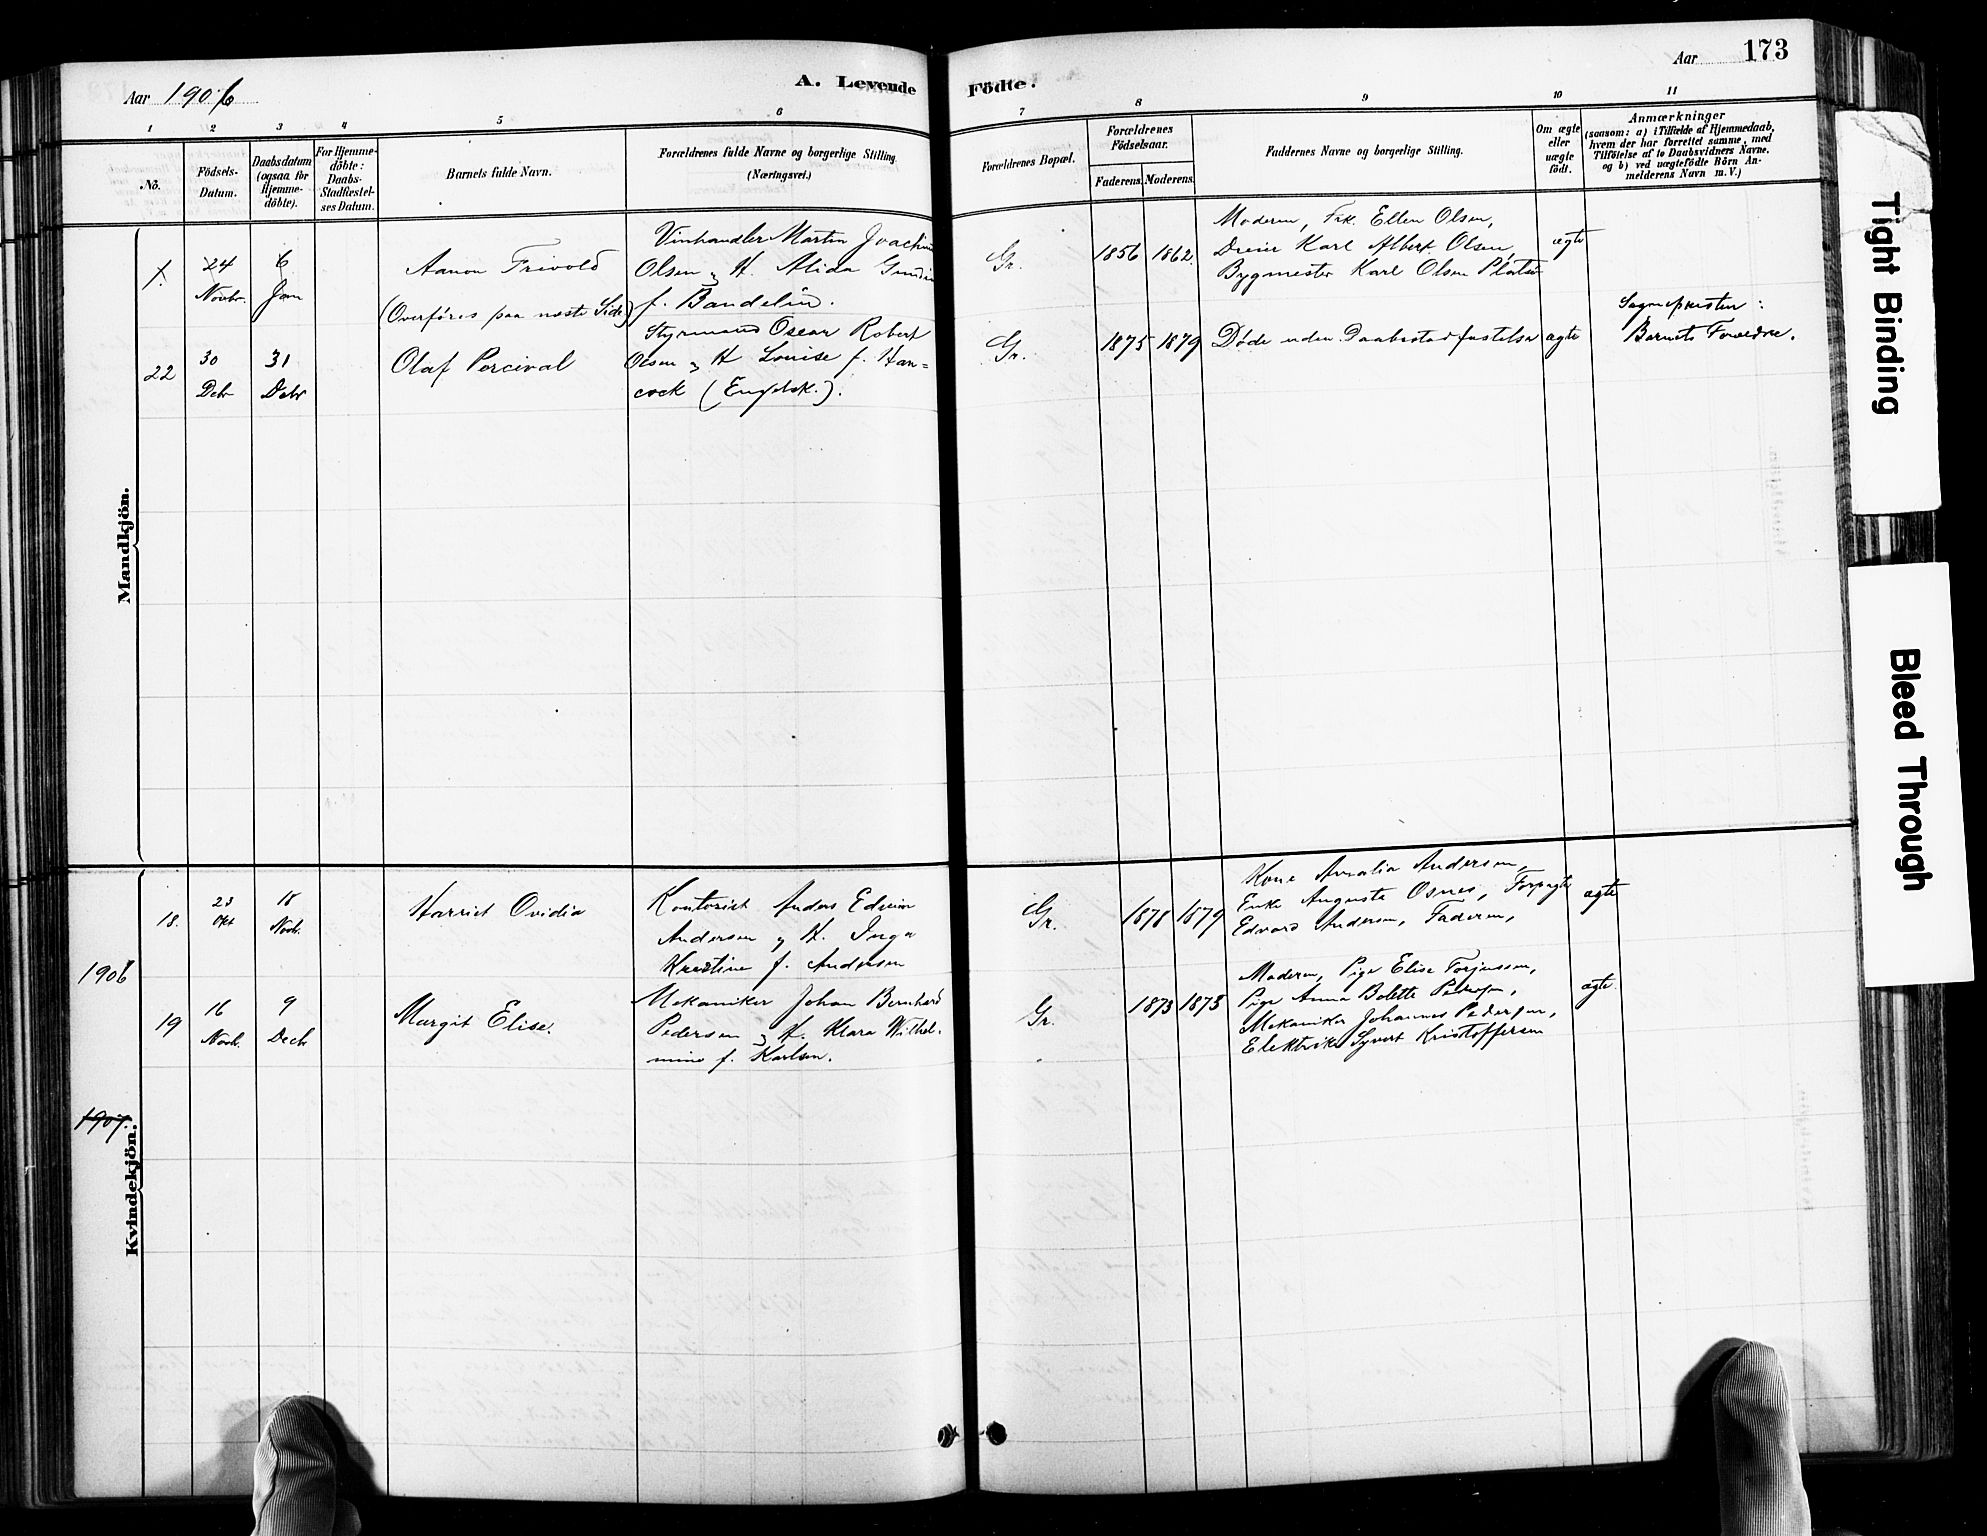 Aar 1906
A. Levende
Födte.
Aar 173
1 2 3 4 5 6 7 8 9 10 11
No.
Födsels-
Datum.
Daabsdatum
(ogsaa for
Hjemme-
döbte).
For Hjemme-
döbte:
Daabs-
Stadfæstel-
ses Datum.
Barnets fulde Navn.
Forældrenes fulde Navne og borgerlige Stilling
(Næringsvei.)
Forældrenes Bopæl.
Forældrenes
Födselsaar.
Faderens. Moderens.
Faddernes Navne og borgerlige Stilling.
Om ægte
eller
uægte
födt.
Anmærkninger
(saasom: a) i Tilfælde af Hjemmedaab,
hvem der har forrettet samme, med
Tilföielse af to Daabsvidners Navne.
og b) ved uægtefödte Börn An-
melderens Navn m.V.)
Mandkjön.
1. 24 Novbr. 6 Jan
Aanon Trivold
(Overføres paa næste Side)
Vinhandler Martin Joachim
Olsen og H. Alida
f. Bandelin.
Gr. 1856 1862.
Moderen, Frk. Ellen Olsen,
Dreier Karl Albert Olsen,
Bygmester Karl Olsen
ægte
22 30 Debr 31 Debr
Olaf Percival
Styrmand Oscar Robert
Olsen og H Louise f. Han=
cock (Engelsk.).
Gr. 1875 1879
Døde uden Daabsstadfæstelse
ægte
Sognepresten:
Barnets Forældre.
18. 23 Okt 18 Novb.
Harriet Ovidia
Kontorist Anders Edvin
Andersen og H. Inga
Kristine f. Andersen
Gr. 1878 1879
Kone Amalia Andersen,
Enke Augusta Osnes, Forpagter
Edvard Andersen, Faderen,
ægte
1906
19 16 Novb. 9 Decb
Margit Elise.
Mekaniker Johan Bernhard
Pedersen og H. Klara Wilhel-
mine f. Karlsen.
Gr. 1873 1873
Moderen, Pige Elise Torjussen,
Pige Anna Bolette Pedersen,
Mekaniker Johannes Pedersen,
Elektriker Syvert Kristoffersen
ægte.
1907.
Kvindekjön.
Tight Binding
Bleed Through